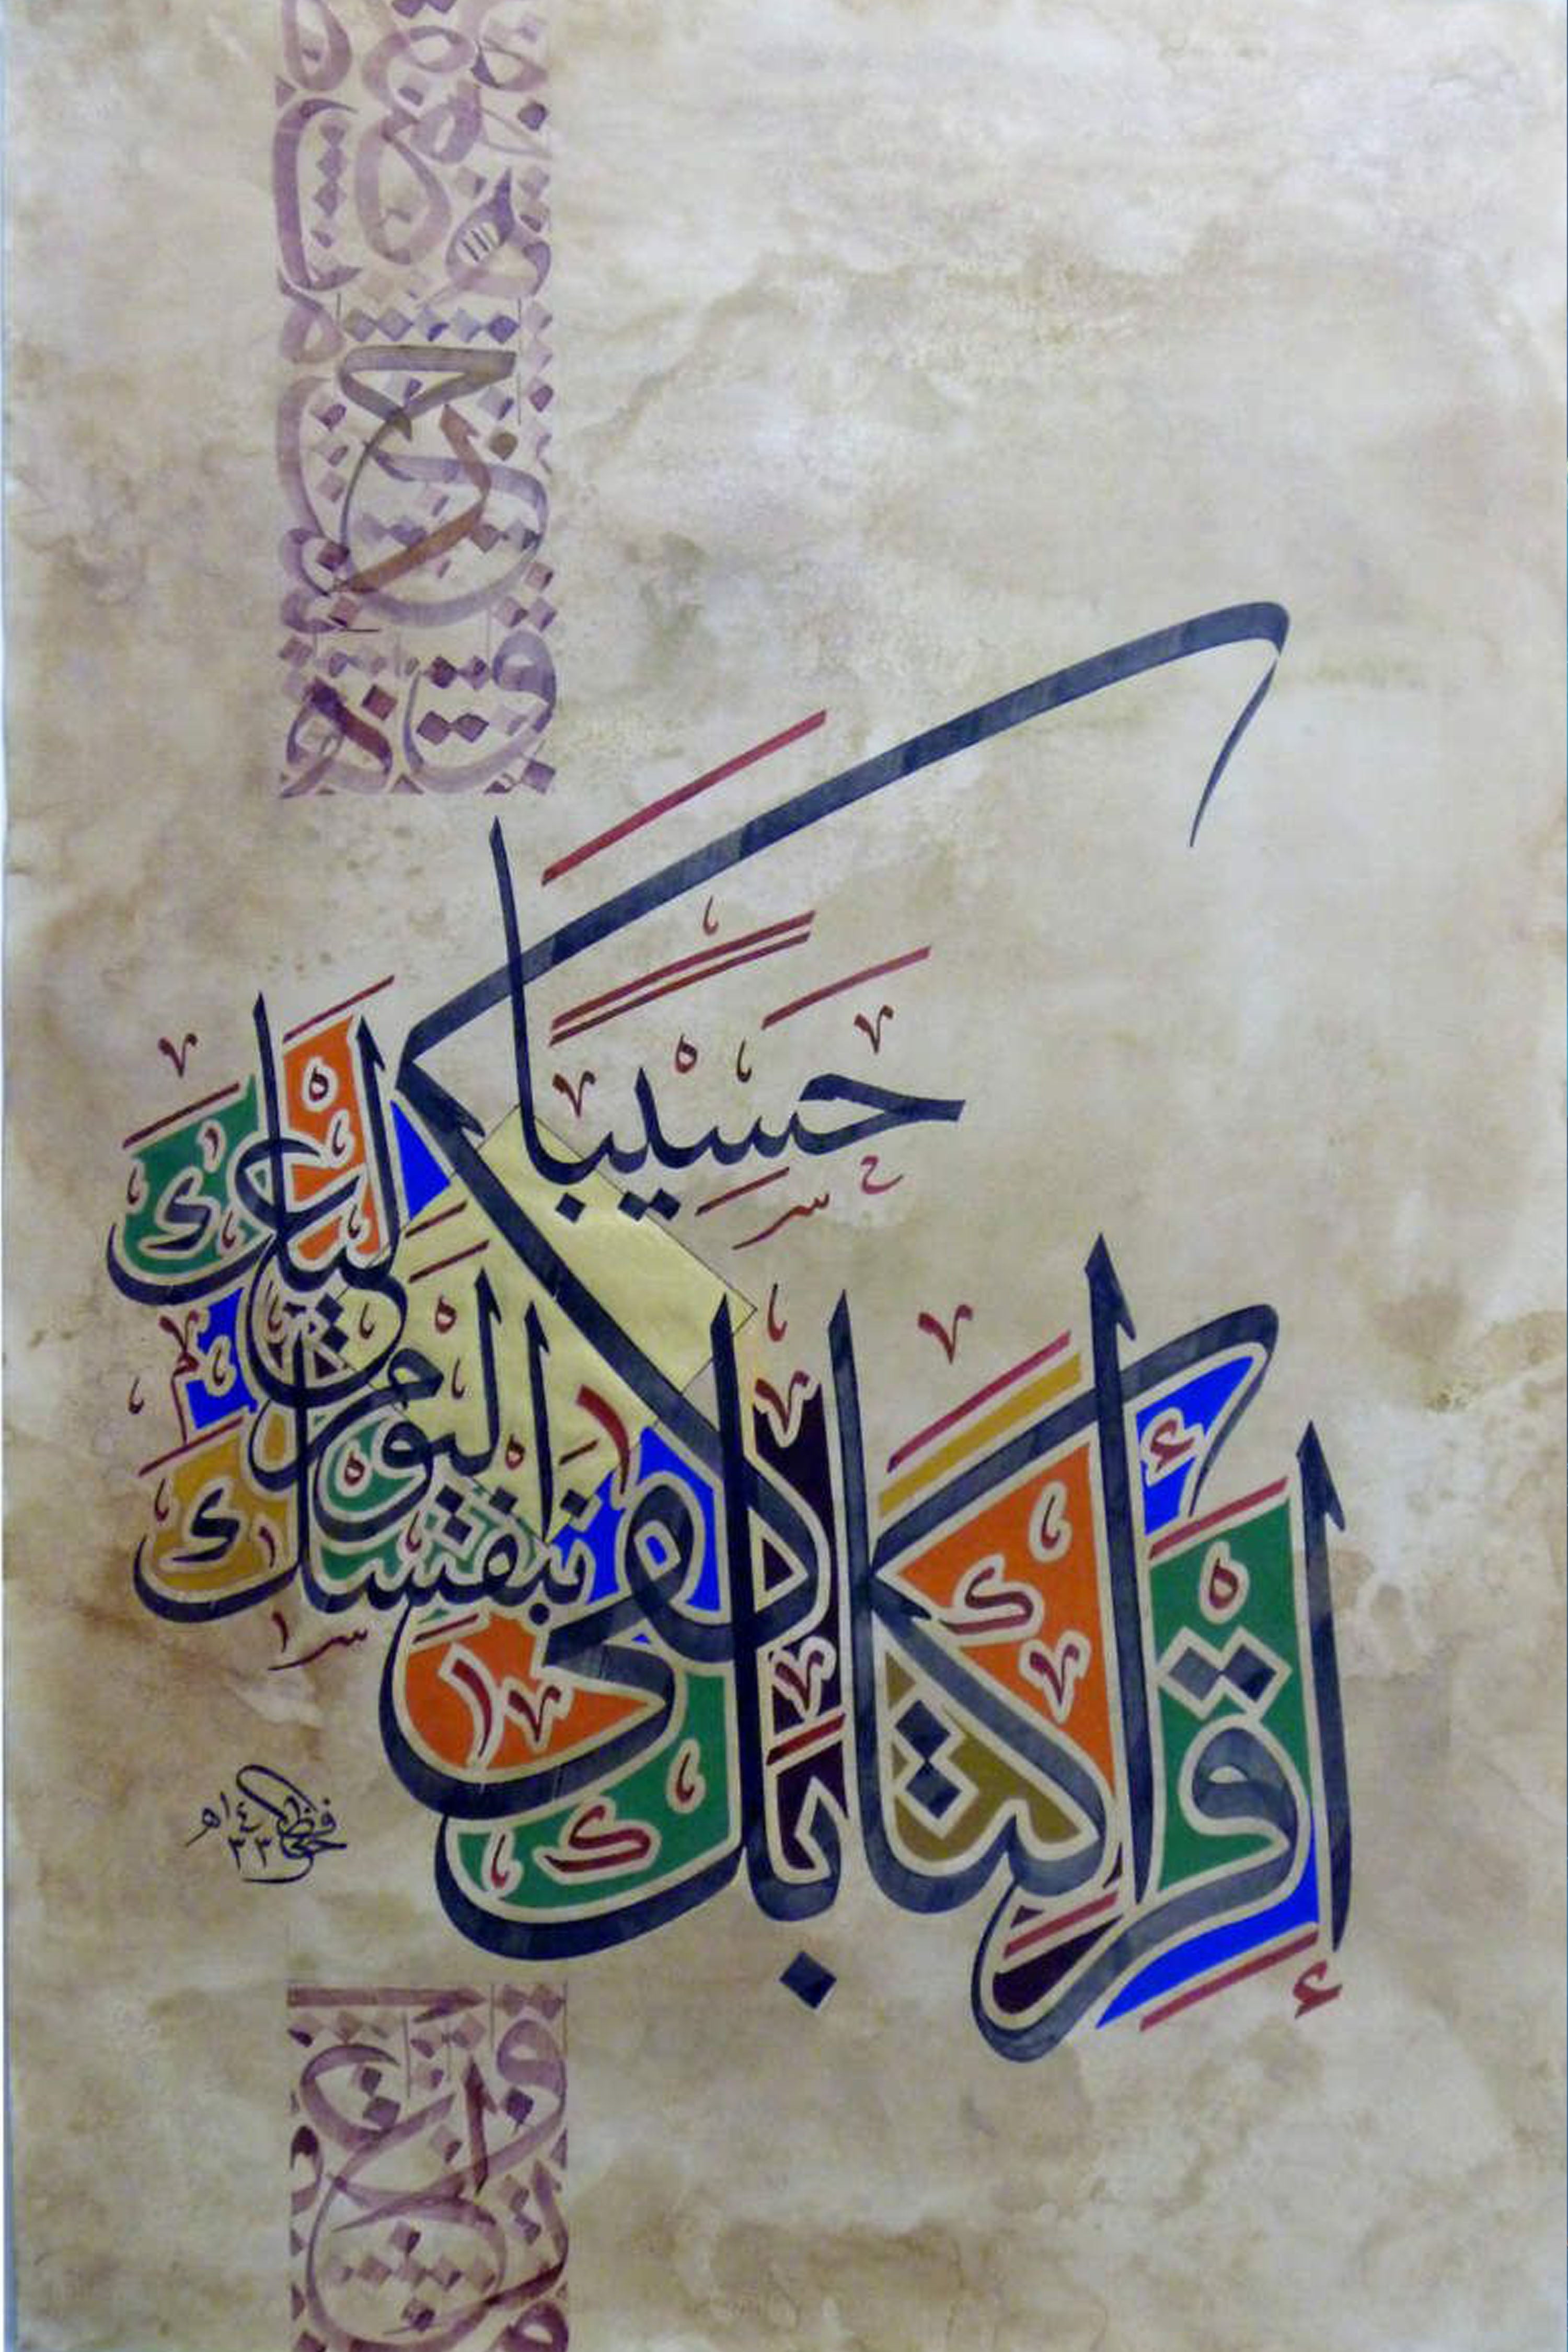 إقرأ كتابك كفى
بنفسك اليوم عليك
حسيبًا
١٤٣٣هـ